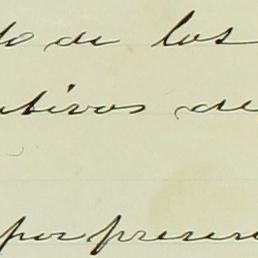 do de los
utivos de
por presen